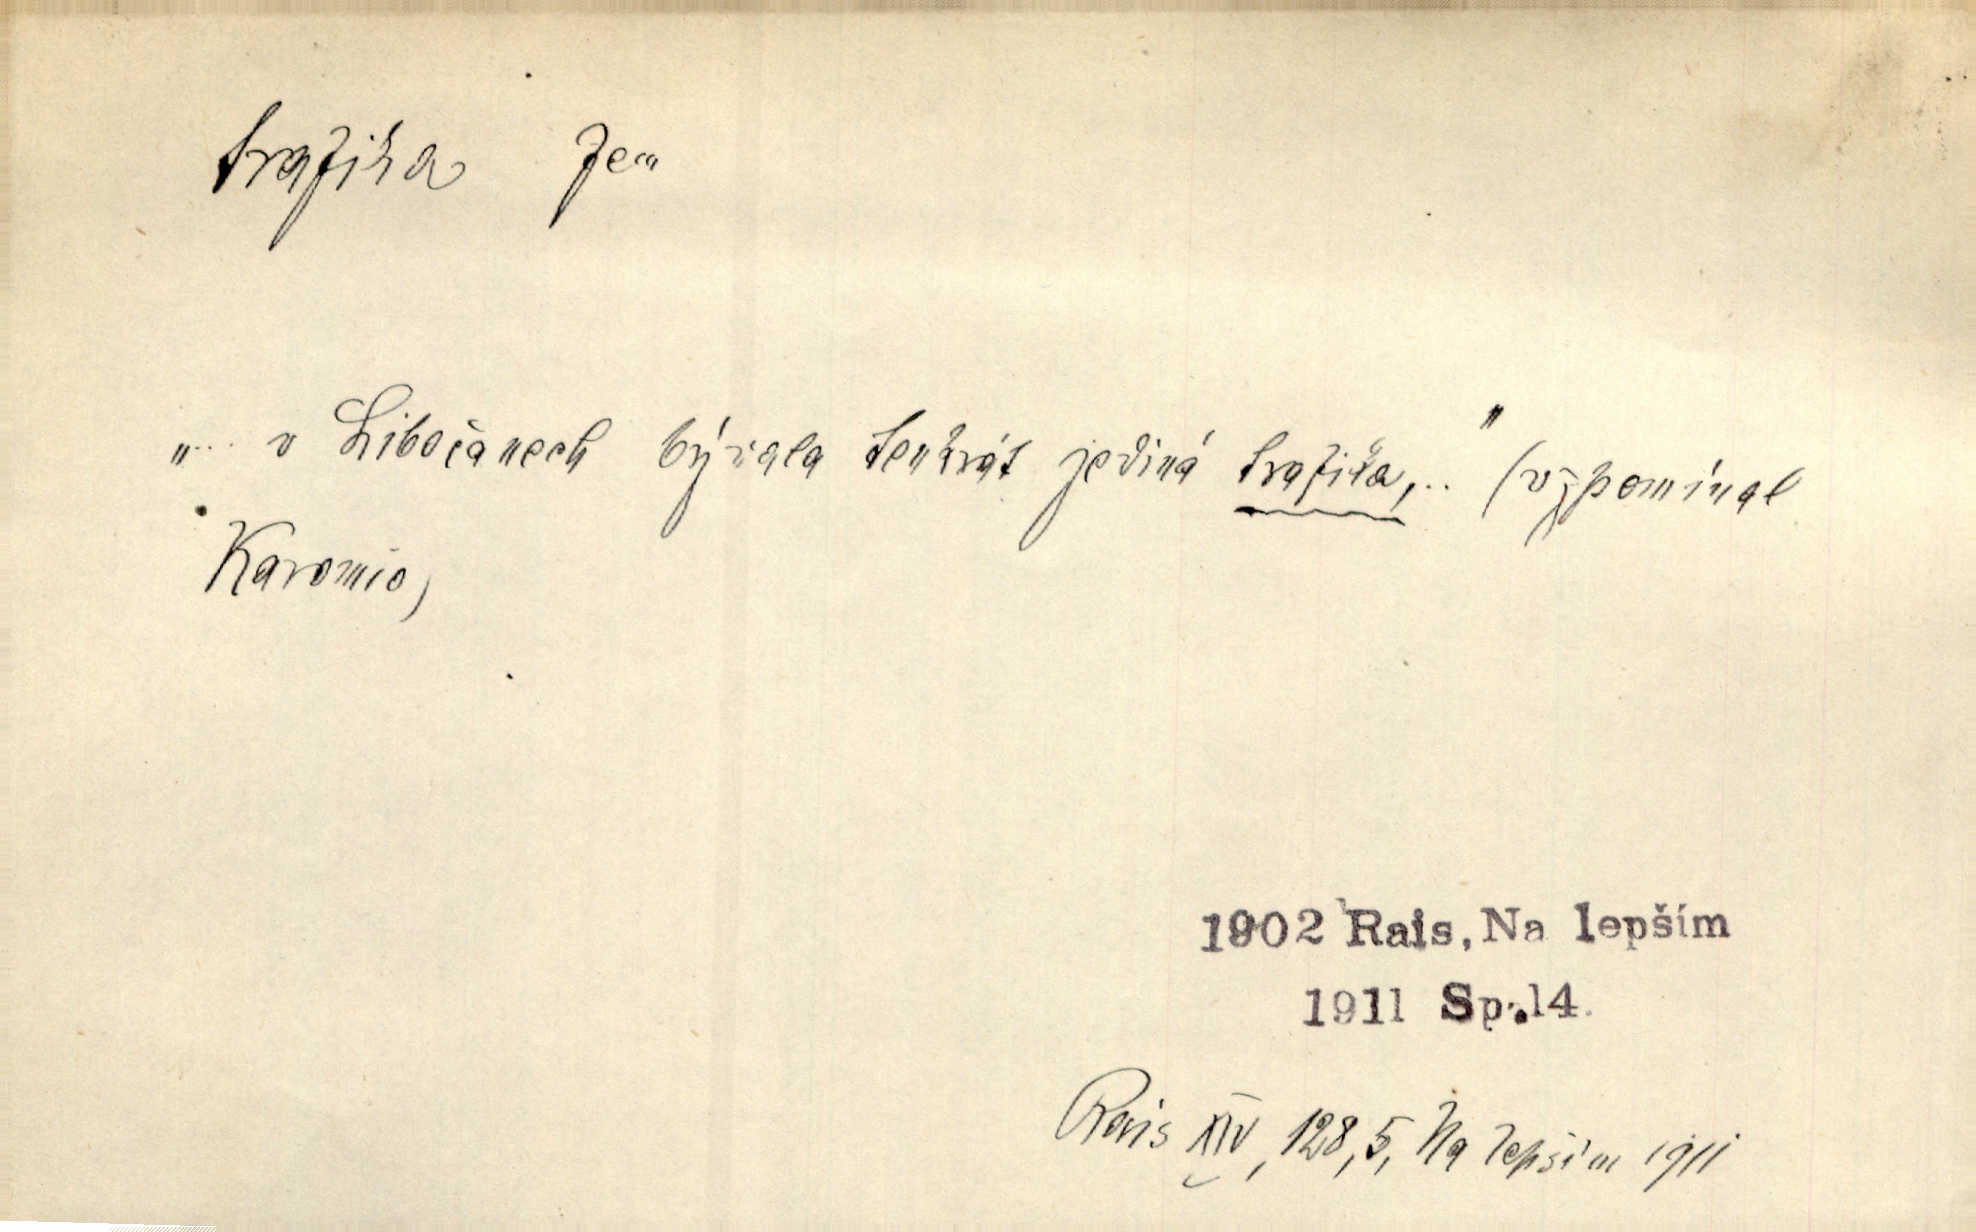 trafika fem
„... v Libočanech bývala tenkrát jediná trafika,.." (vzpomínal
Karomio)
1902 Rais, Na lepším
1911 Sp.14.
Rais XIV, 128,5, Na lepším 1911